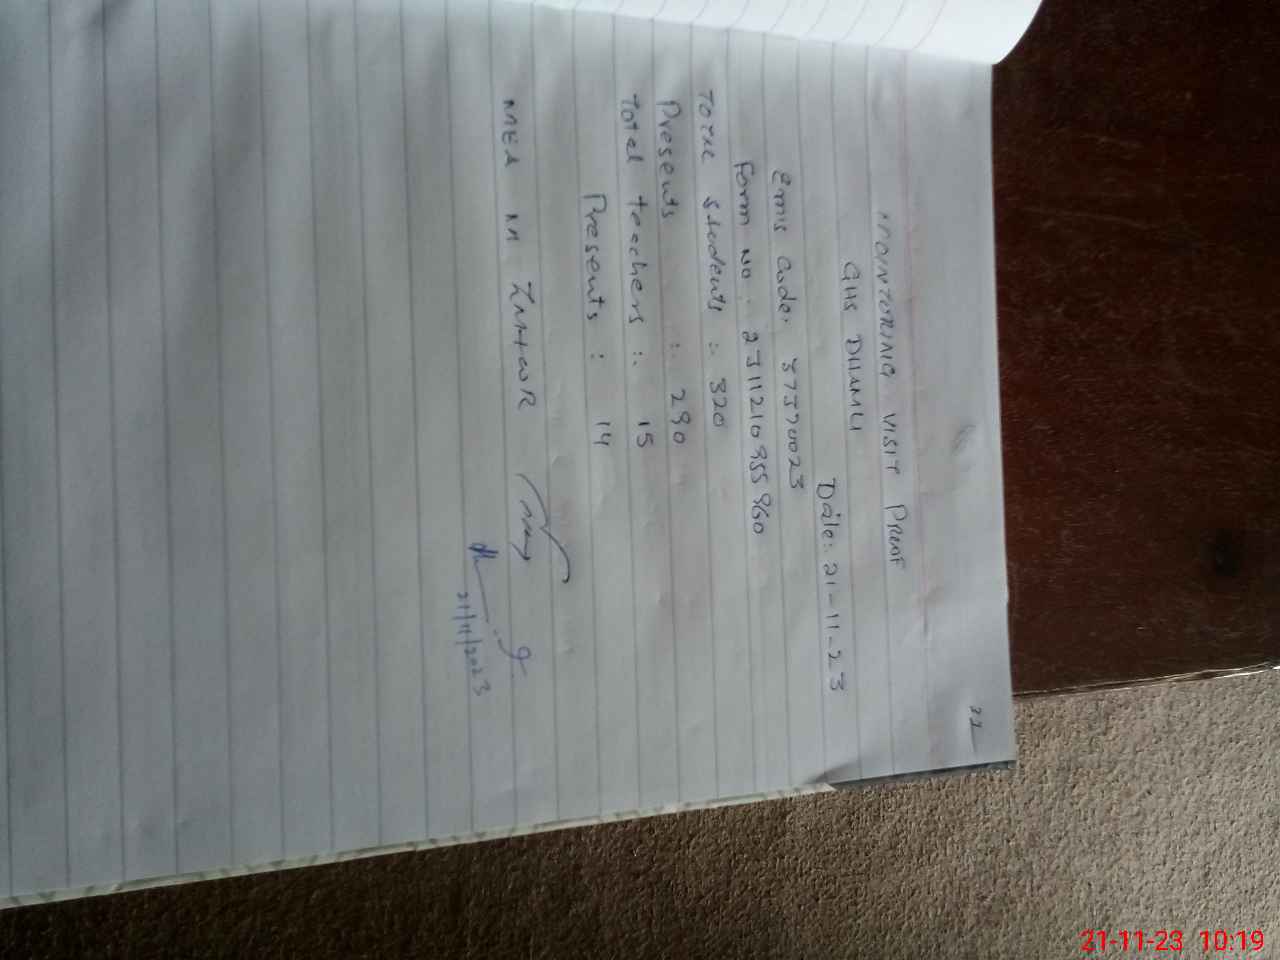 31
MOINTORING VISIT PROOF
GHS DHAMLI
Date: 21-11-23
Emis Code: 37370023
Form No: 2311210955960
Total students : 320
Presents : 290
Total teachers : 15
Presents : 14
MEA M ZAHOOR
21/11/2023
21-11-23 10:19